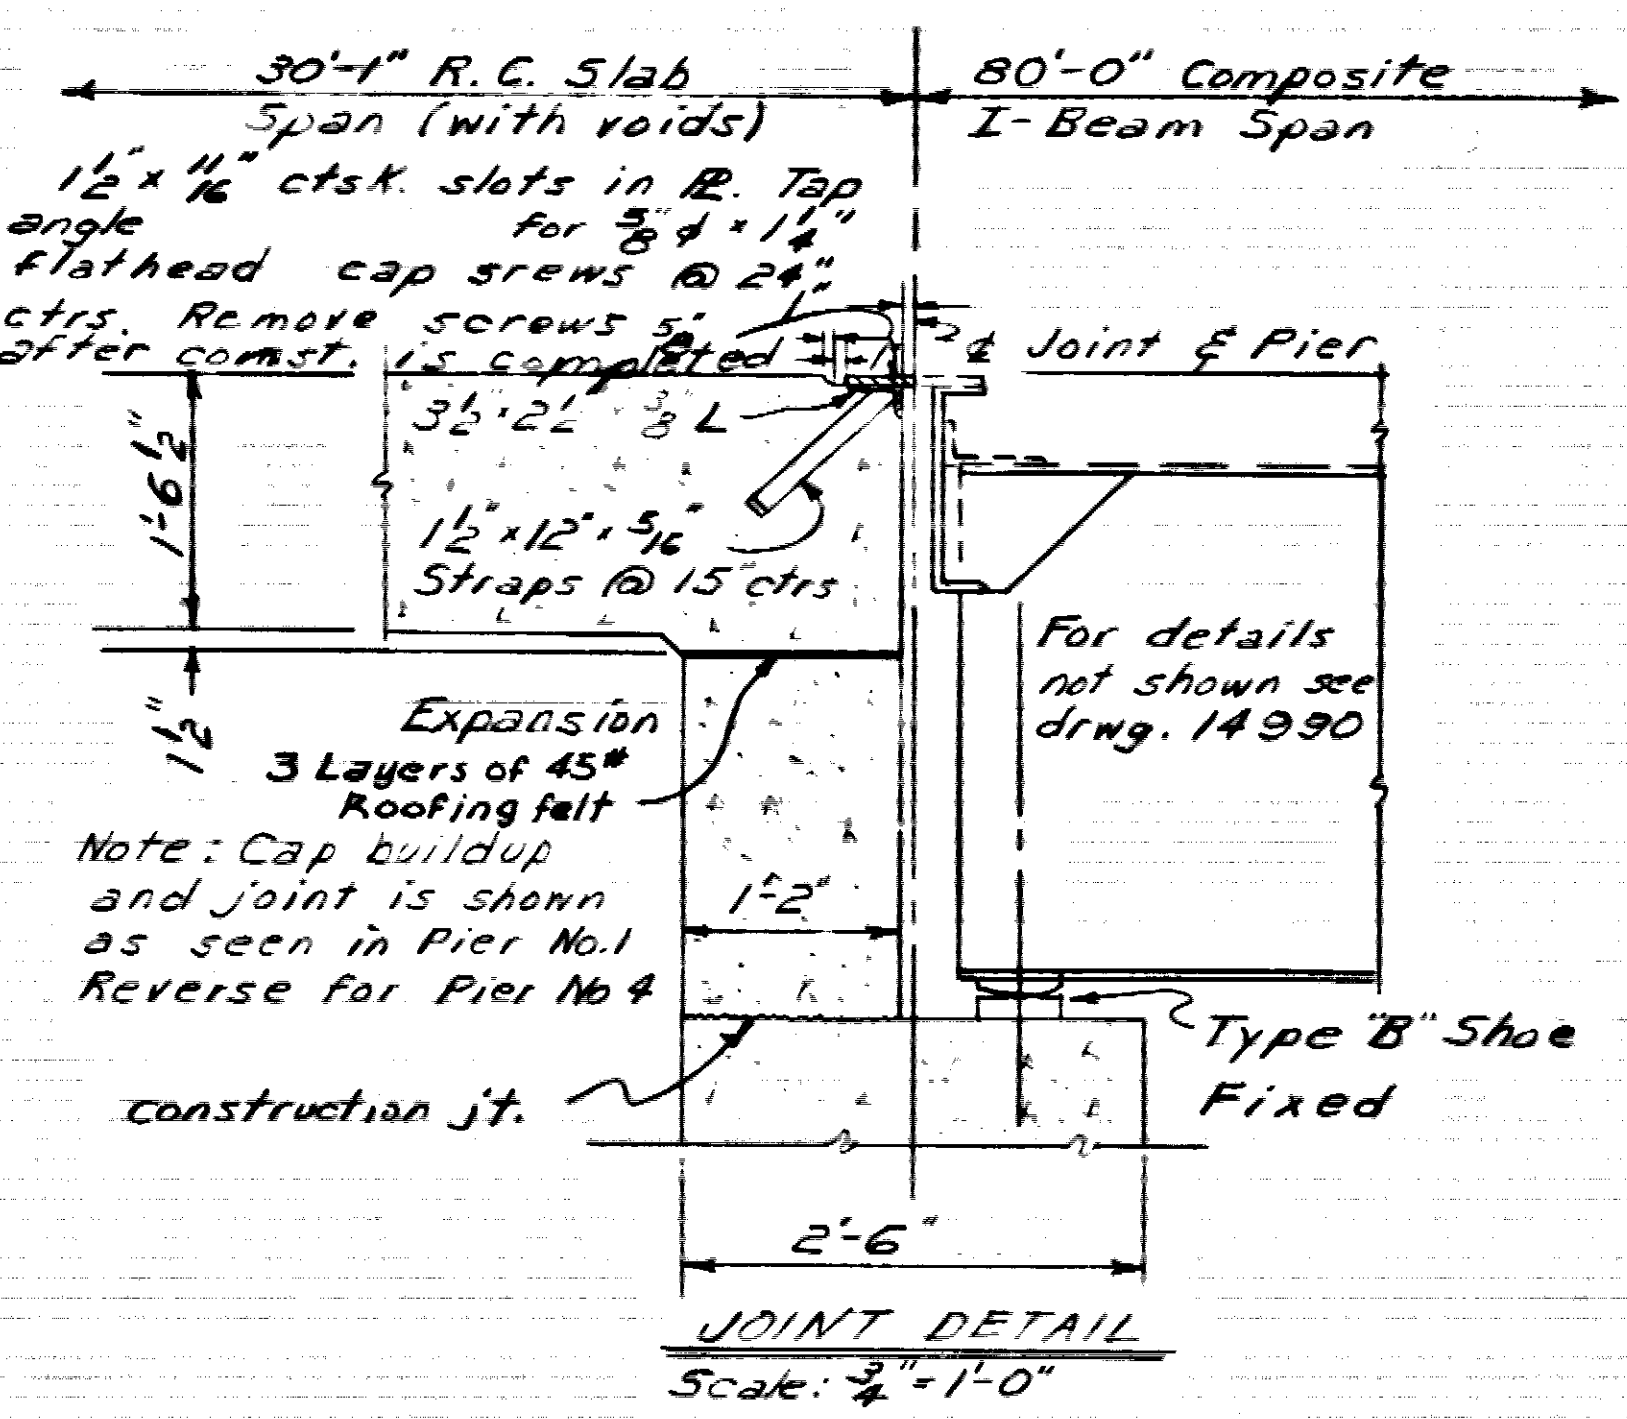 30'-1" R.C. Slab
Span (with voids)
80'-0" Composite
I-Beam Span
1 1/2" x 11/16" ctsk. slots in PL. Tap
angle for 5/8" ø x 1 1/4"
flathead cap srews @ 24"
ctrs. Remove screws
after comst. is completed
1"
5/8"
℄ Joint & Pier
3 1/2 x 2 1/2 3/8 L
1'-6 1/2"
1 1/2" x 12" x 5/16"
Straps @ 15" ctrs
1 1/2"
For details
not shown see
drwg. 14990
Expansion
3 Layers of 45#
Roofing felt
Note: Cap buildup
and joint is shown
as seen in Pier No.1
Reverse for Pier No 4
1'-2"
Type "B" Shoe
Fixed
construction j't.
2'-6"
JOINT DETAIL
Scale: 3/4" = 1'-0"